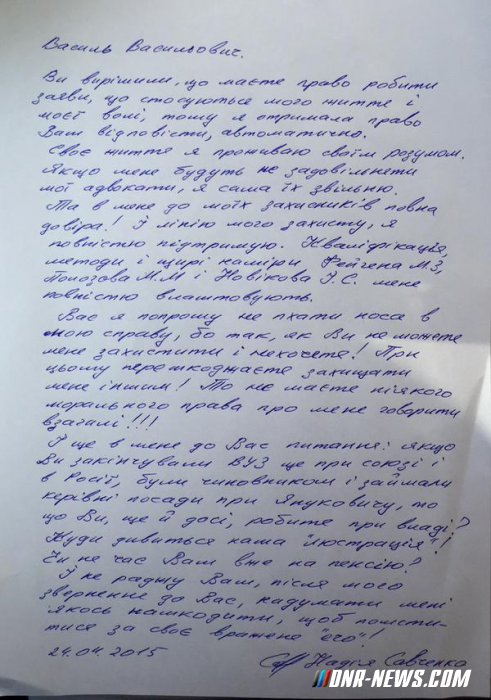 Василь Васильович.
Ви вирішили, що маєте право робити
заяви, що стосуються мого життя і
моєї волі, тому я отримала право
Вам відповісти, автоматично.
Своє життя я проживаю своїм розумом.
Якщо мене будуть не задовільняти
мої адвокати, я сама їх звільню.
Та в мене до моїх захисників повна
довіра! І лінію мого захисту, я
повністю підтримую. Кваліфікація,
методи і щирі наміри Фейгена М.З,
Полозова М.М і Новікова І.С. мене
повністю влаштовують.
Вас я попрошу не пхати носа в
мою справу, бо так, як Ви не можете
мене захистити і нехочете! При
цьому перешкоджаєте захищати
мене іншим! То не маєте ніякого
морального права про мене говорити
взагалі!!!
І ще в мене до Вас питання: якщо
Ви закінчували ВУЗ ще при союзі і
в Росії, були чиновником і займали
керівні посади при Януковичу, то
що Ви, ще й досі, робите при владі?
Куди дивиться наша "люстрація"!
Чи не час Вам вже на пенсію?
І не раджу Вам, після мого
звернення до Вас, надумати мені
якось нашкодити, щоб помсти-
тися за своє вражене "его"!
24.04.2015 Надія Савченко
DNR-NEWS.COM